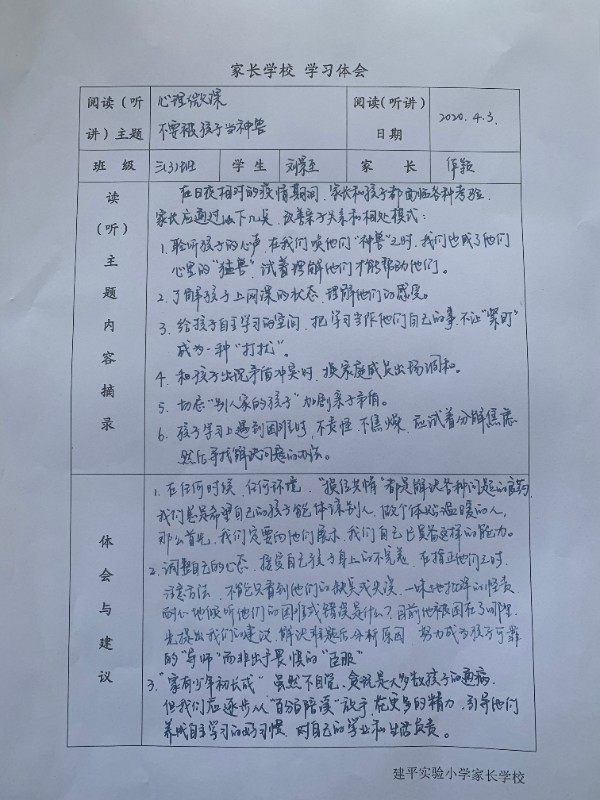 家长学校 学习体会
阅读（听讲）主题
心理微课
不要被孩子当神兽
阅读（听讲）日期
2020.4.3.
班 级
三(3)班
学 生
家 长
读（听）主题内容摘录
在日夜相对的疫情期间，家长和孩子都面临各种考验，
家长应通过以下几点，改善亲子关系和相处模式：
1. 聆听孩子的心声，在我们唤他们“神兽”之时，我们也成了他们
心里的“猛兽”，试着理解他们才能帮助他们。
2. 了解孩子上网课的状态，理解他们的感受。
3. 给孩子自主学习的空间，把学习当作他们自己的事，不让“紧盯”
成为一种“打扰”。
4. 和孩子出现矛盾冲突时，换家庭成员出场调和。
5. 切忌“别人家的孩子”加剧亲子矛盾。
6. 孩子学习上遇到困难时，不责怪，不焦燥，应试着分解焦虑
然后寻找解决问题的办法。
体会与建议
1. 在任何时候，任何环境，“换位共情”都是解决各种问题的良药，
我们总是希望自己的孩子能体谅别人，做个体贴温暖的人，
那么首先，我们定要向他们展示，我们自己已具备这样的能力。
2. 调整自己的心态，接受自己孩子身上的不完美，在指正他们之时，
注意方法，不能只看到他们的缺点或失误，一味地批评的怪责，
耐心地倾听他们的困难或错误是什么？目前他被困在了哪里，
先提出我们的建议，解决难题后分析原因，努力成为孩子可靠
的“导师”而非出于畏惧的“臣服”
3. “家有少年初长成”虽然不自觉、贪玩是大多数孩子的通病，
但我们应逐步从“百分百陪读”放手，花更多的精力，引导他们
养成自主学习的好习惯，对自己的学业和生活负责。
建平实验小学家长学校